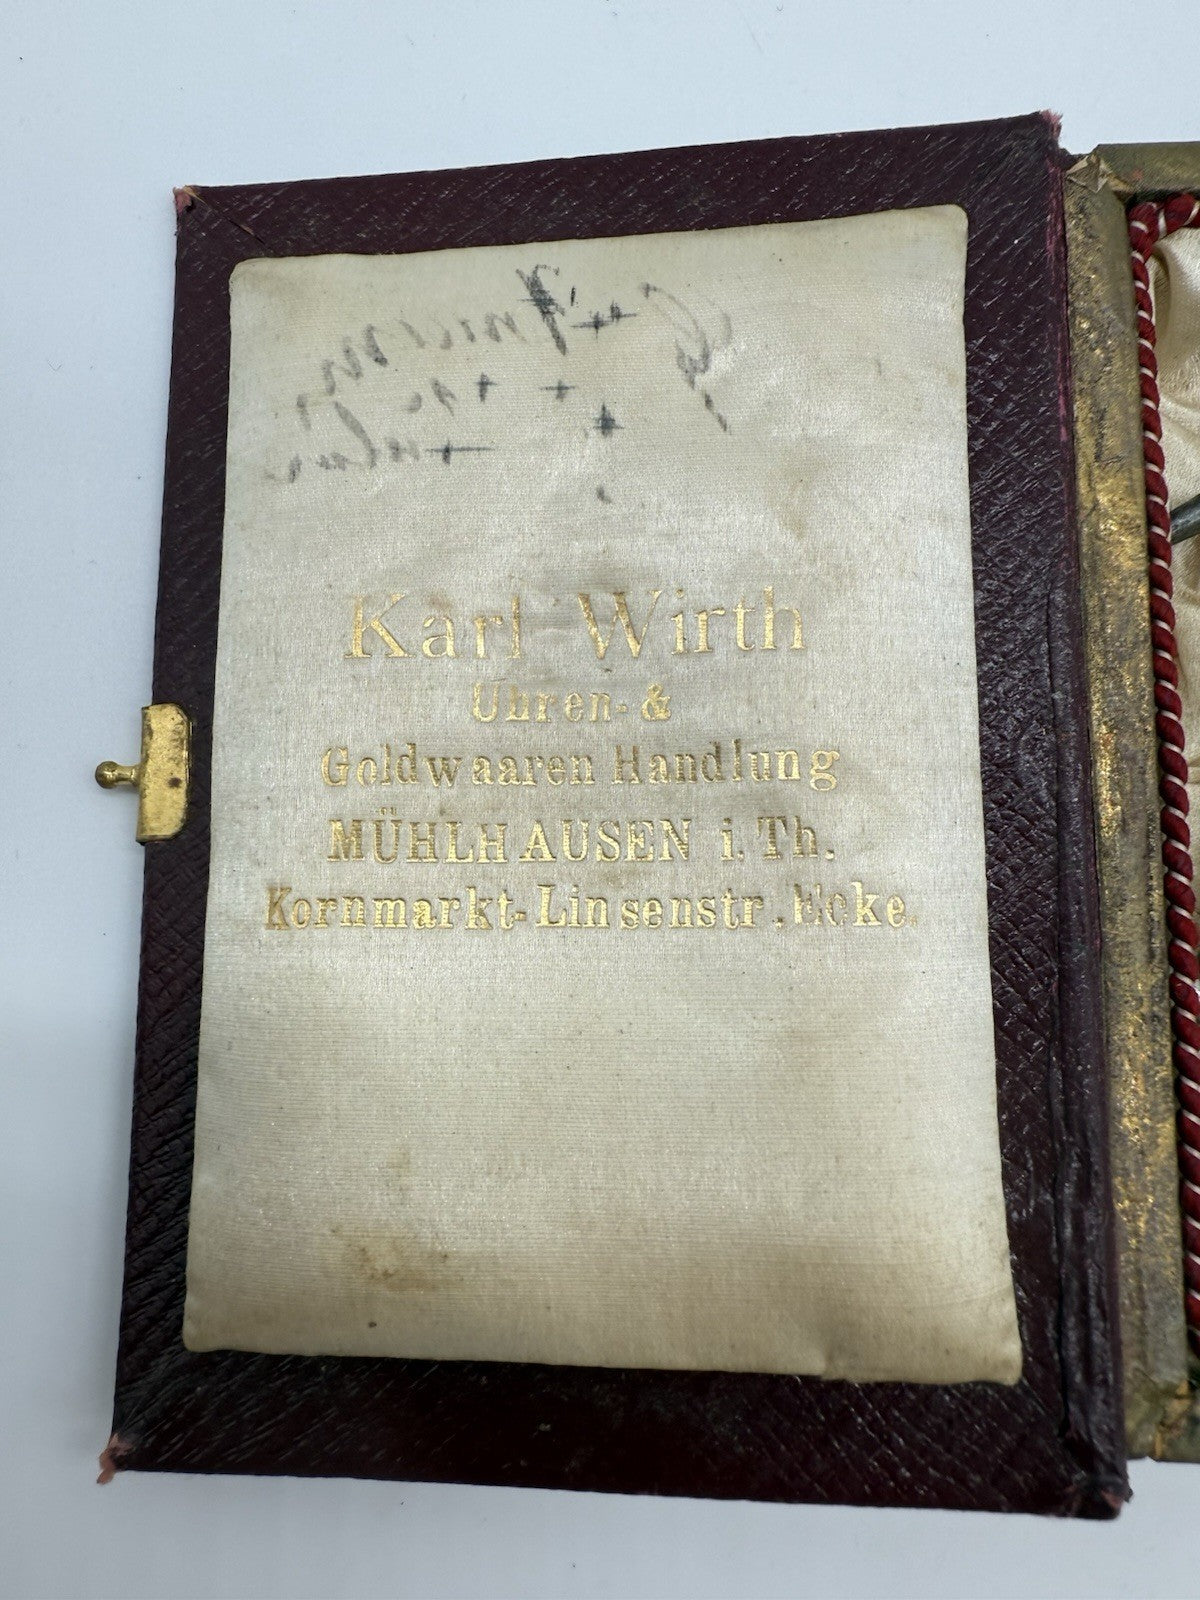 Karl Wirth
Uhren- &
Goldwaaren Handlung
MÜHLHAUSEN i. Th.
Kornmarkt-Linsenstr. Ecke.